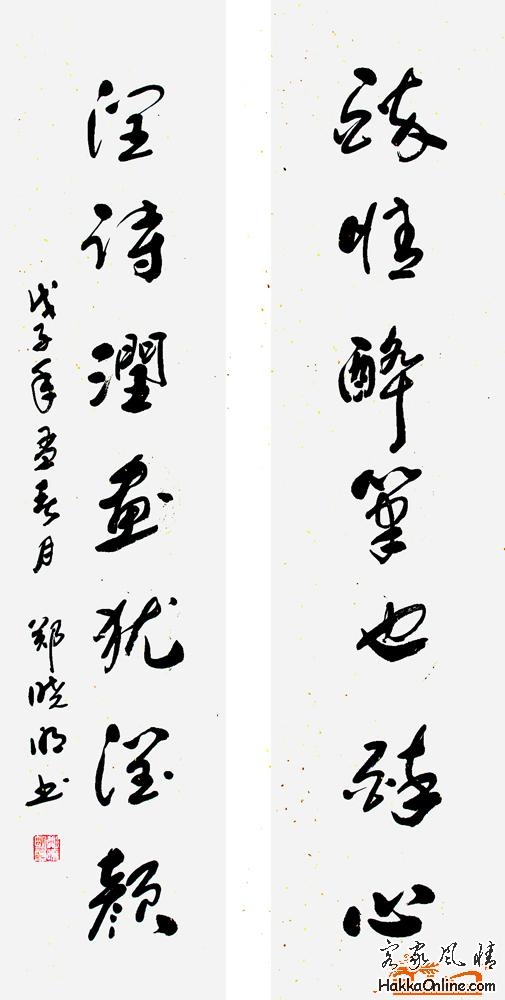 醉情醉笔也醉心
润诗润画犹润颜
戊子年孟春月 郑晓明书
客家风情
HakkaOnline.com